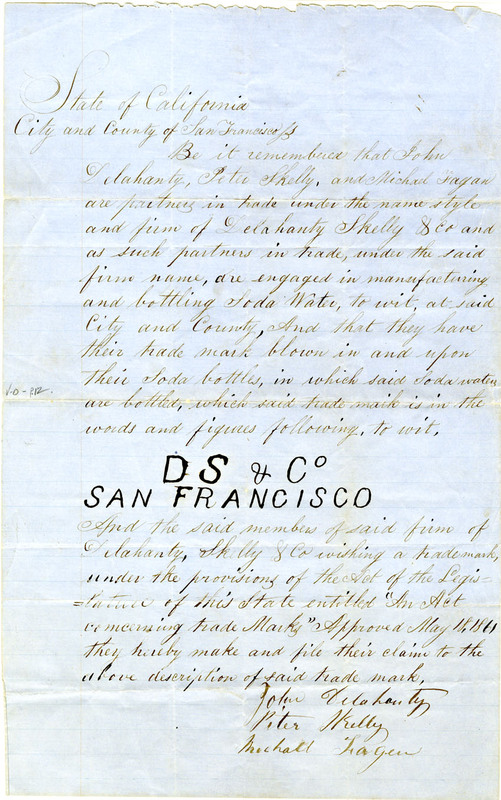 State of California
City and County of San Francisco ss
Be it remembered that John
Delahanty, Peter Skelly, and Michael Fagan
are partners in trade under the name style
and firm of Delahanty Skelly & Co and
as such partners in trade, under the said
firm name, are engaged in manufacturing
and bottling Soda Water, to wit, at said
City and County, And that they have
their trade mark blown in and upon
their Soda bottles, in which said Soda water
are bottled, which said trade mark is in the
words and figures following, to wit,
DS & Co
SAN FRANCISCO
And the said members of said firm of
Delahanty, Skelly & Co wishing a trademark,
under the provisions of the Act of the Legis=
=lature of this State entitled "An Act
concerning trade Marks" Approved May 18, 1861
they hereby make and file their claim to the
above description of said trade mark,
John Delahanty
Peter Skelly
Michall Fagen